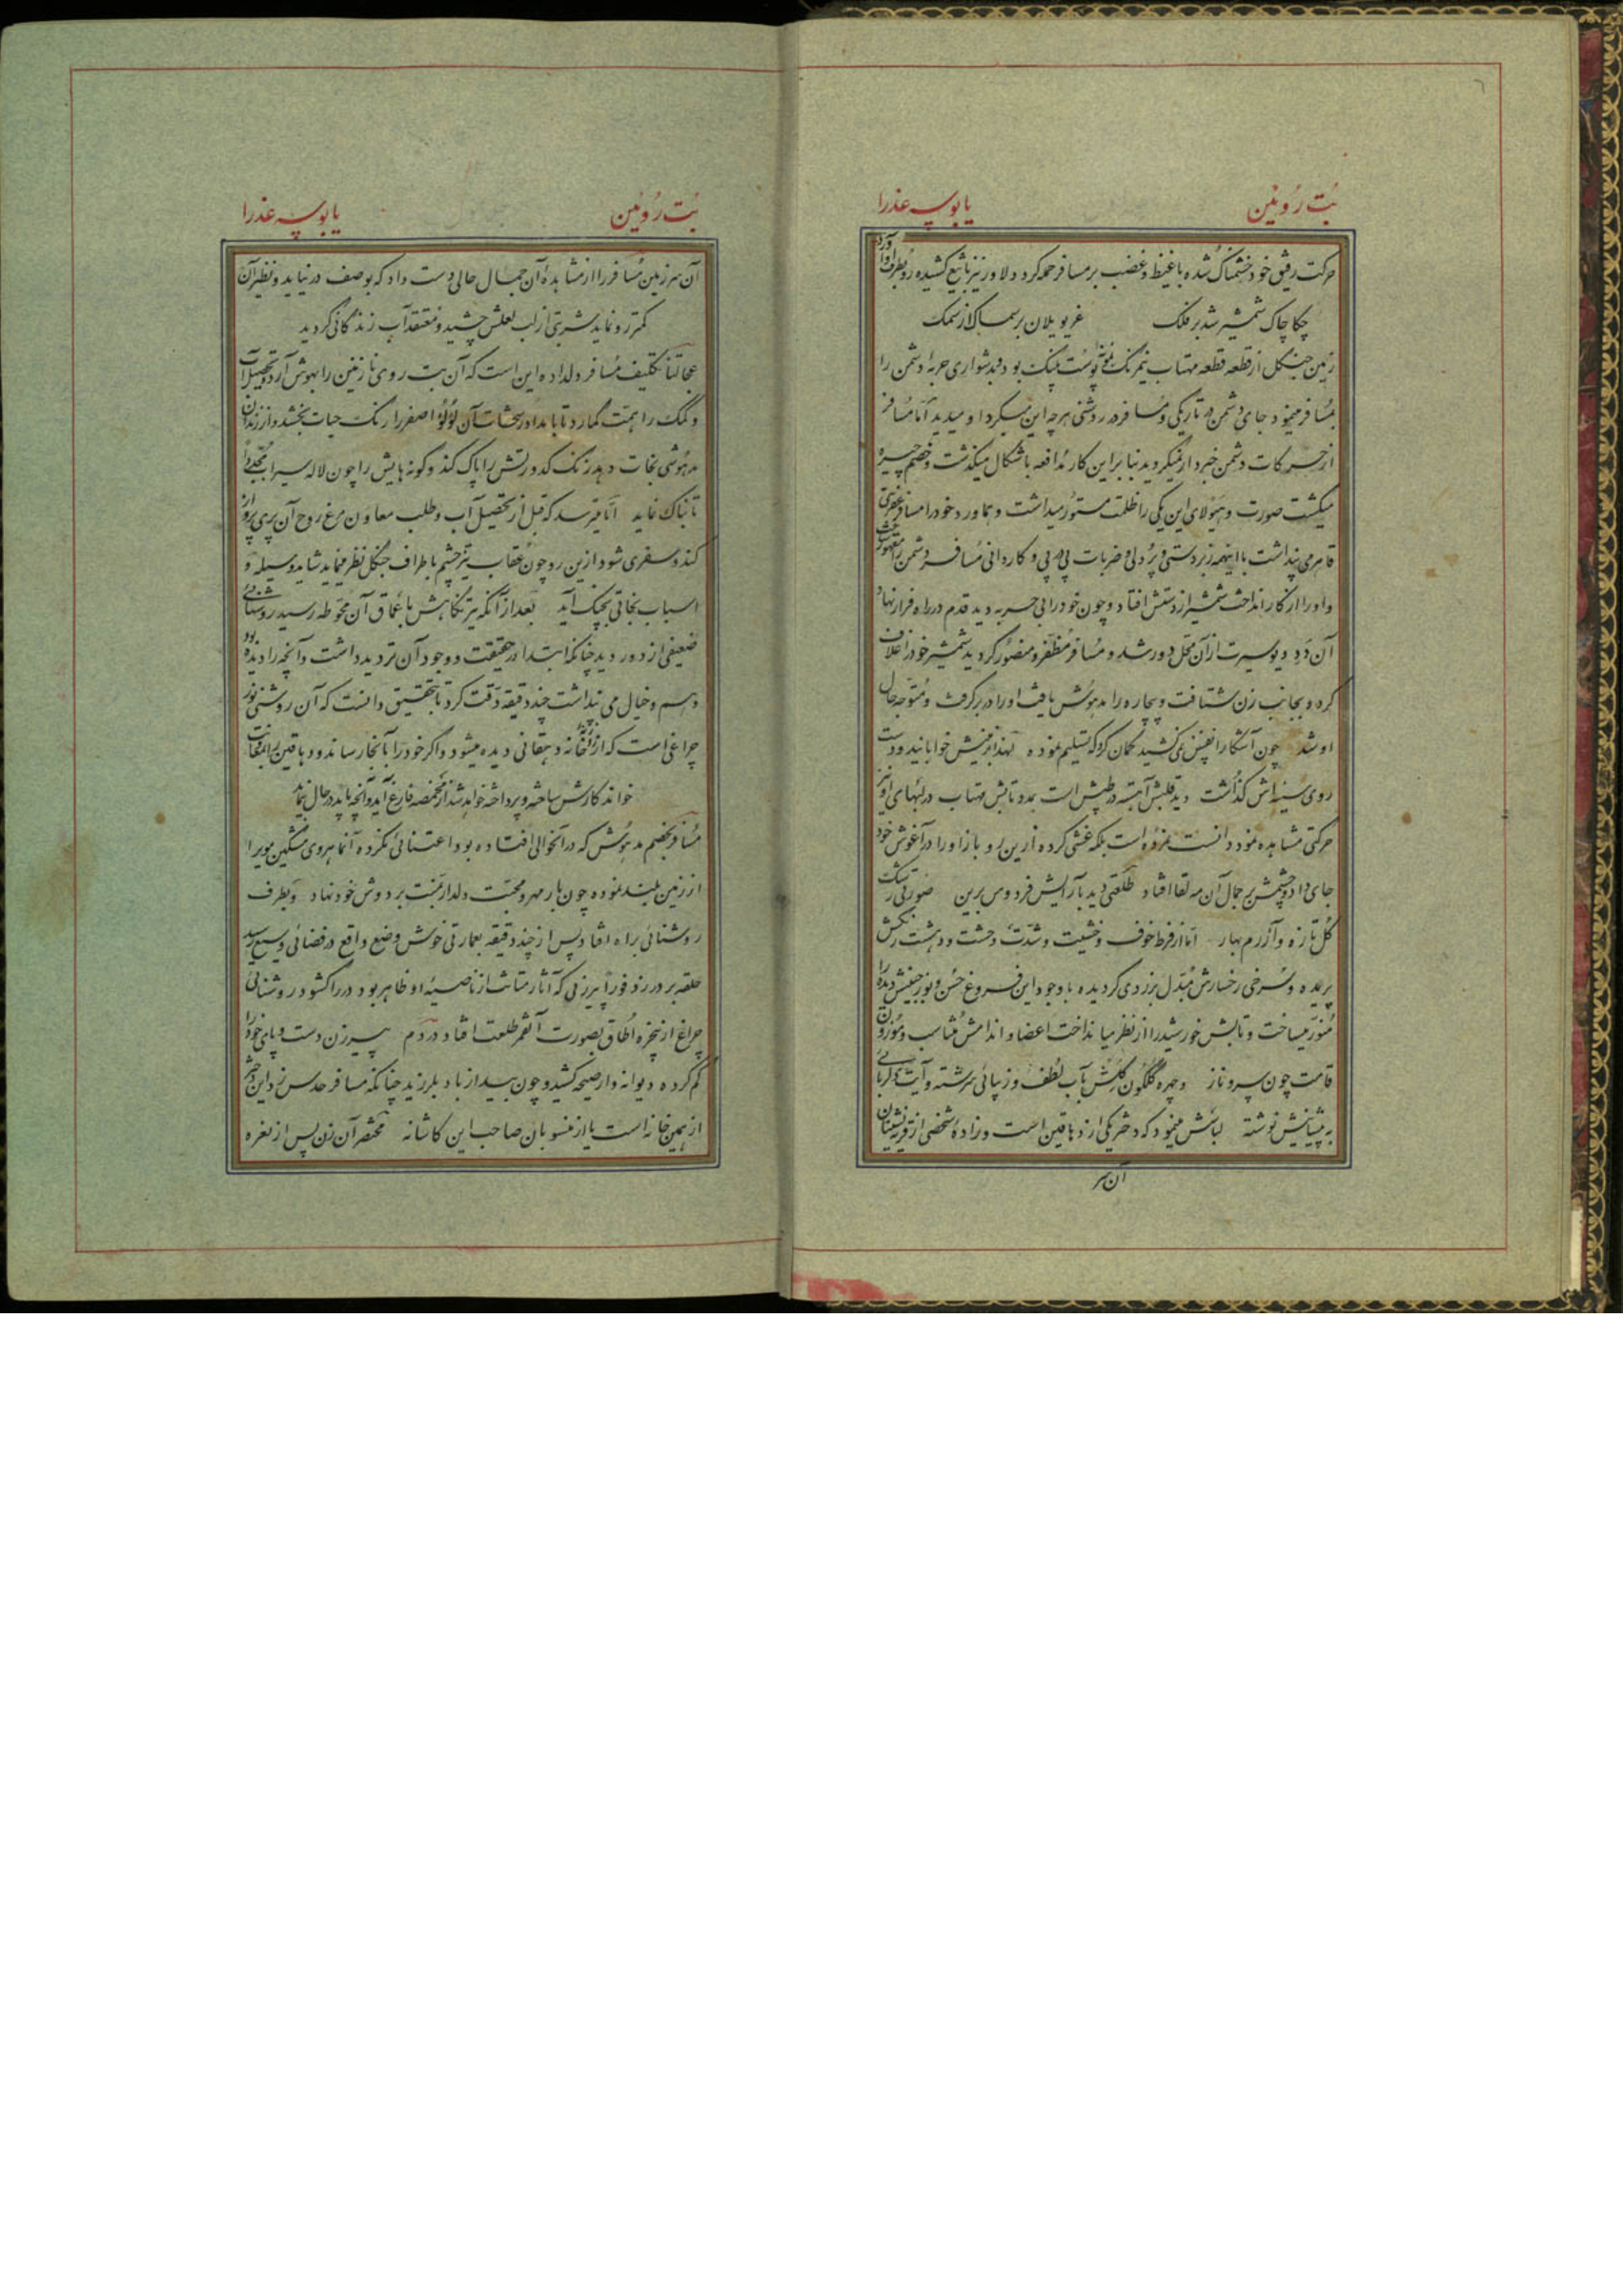 بُت رُوئین
یا بوسه عذرا
حرکت رفیق خود خشمناک شده با غیظ و غضب بر مسافر حمله کرد دلاور نیز با تیغ کشیده رو بطرف او آورد
چکاچاک شمشیر شد بر فلک غریو یلان بر سماک از سمک
زمین جنگل از قطعه قطعه مهتاب نیمرنگ نمونه پوست پلنگ بود و بدشواری حربه دشمن را
بمسافر مینمود جای دشمن در تاریکی و مسافر در روشنی هر چه این میکرد او میدید اما مسافر
از حرکات دشمن خبردار نمیگردید بنا بر این کار مدافعه باشکال میگذشت و خصم چیره
میگشت صورت و هیولای این یکی را ظلمت مستور میداشت و هماورد خود را مسافر
قاهری می پنداشت با اینهمه زبردستی و پردلی و ضربات پی در پی و کاردانی مسافر دشمن را مقهور
و او را از کار انداخت شمشیر از دستش افتاد و چون خود را بی حربه دید قدم در راه فرار نهاد
آن دد دیو سیرت از آن محل دور شد و مسافر مظفر و منصور گردید شمشیر خود را غلاف
کرد و بجانب زن شتافت و بیچاره را مدهوش یافت او را در بر گرفت و متوجه حال
او شد چون آشکارا نفس نمی کشید گمان کرد که تسلیم نموده لهذا بر زمینش خوابانید و دست
روی سینه اش گذاشت دید قلبش آهسته در طپش است بمدد تابش مهتاب در لبهای او نیز
حرکتی مشاهده نمود دانست نمرده است بلکه غشی کرده از این رو باز او را در آغوش خود
جای داد و چشمش بر جمال آن مه لقا افتاد طلعتی دید بآرایش فردوس برین صورتی رشک
گل تازه و آزرم بهار اما از فرط خوف و خشیت و شدت وحشت و دهشت رنگش
پریده و سرخی رخسارش مبدل بزردی گردیده با وجود این فروغ حسن و نور جبینش دیده را
منور میساخت و تابش خورشید را از نظر میانداخت اعضا و اندامش متناسب و موزون
قامت چون سرو ناز و چهره گلگون گلش بآب لطف و زیبائی سرشته و آیت دلربائی
به پیشانیش نوشته لباسش مینمود که دختر یکی از دهاقین است و زاده شخصی از قریه نشینان
آن سر
بُت رُوئین
یا بوسه عذرا
آن سرزمین مسافر را از مشاهده آن جمال حالی دست داد که بوصف در نیاید و نظیر آن
کمتر رو نماید شربتی از لب لعلش چشید و معتقد آب زندگانی گردید
عجالتاً تکلیف مسافر دلداده این است که آن بت روی نازنین را بهوش آرد و بتحصیل آب
و کمک را همت گمارد تا بامداد رشحات آن لؤلؤ اصفر را رنگ حیات بخشد و از زندان
مدهوشی نجات دهد زنگ کدورتش را پاک کند و گونه هایش را چون لاله سیراب مجدداً
تابناک نماید اما میترسد که قبل از تحصیل آب و طلب معاون مرغ روح آن پری پرواز
کند و سفری شود از این رو چون عقاب تیز چشم باطراف جنگل نظر مینماید شاید وسیله و
اسباب نجاتی بچنگ آید بعد از آنکه تیر نگاهش باعماق آن محوطه رسید روشنائی
ضعیفی از دور دید چنانکه ابتدا در حقیقت و وجود آن تردید داشت و آنچه را دیده بود
وهم و خیال می پنداشت چند دقیقه دقت کرد تا بتحقیق دانست که آن روشنی نور
چراغی است که از خانه دهقانی دیده میشود و اگر خود را بآنجا رساند و دهاقین را باعانت
خواند کارش ساخته و پرداخته خواهد شد از مخمصه فارغ آید و آنچه باید در حال نماید
مسافر بخصم مدهوش که در آنحوالی افتاده بود اعتنائی نکرده آنماهروی مشکین مو را
از زمین بلند نموده چون بار مهر و محبت دلدار بمنت بر دوش خود نهاد و بطرف
روشنائی براه افتاد پس از چند دقیقه بعمارتی خوش وضع واقع در فضائی وسیع رسید
حلقه بر در زد فوراً پیرزنی که آثار متانت از ناصیه او ظاهر بود در را گشود روشنائی
چراغ از پنجره اطاق بصورت آنقمر طلعت افتاد در دم پیرزن دست و پای خود را
گم کرده دیوانه وار صیحه کشید و چون بید از باد بلرزید چنانکه مسافر حدس زد این دختر
از همین خانه است یا از منسوبان صاحب این کاشانه مختصر آن زن پس از نعره